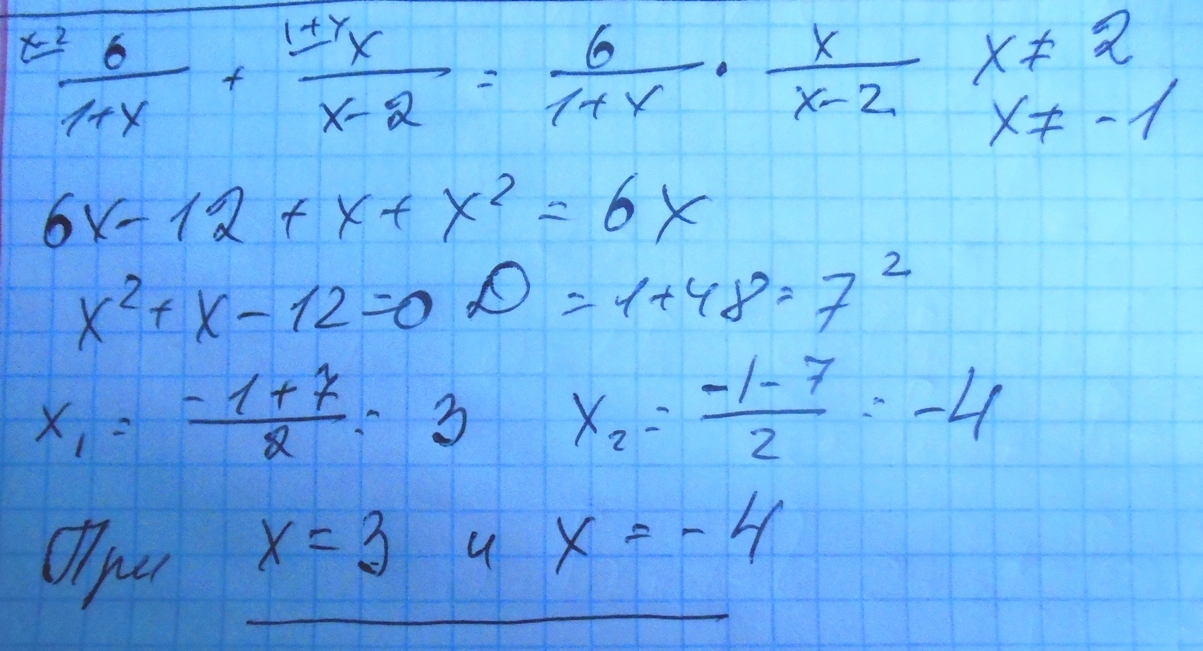 x-2 6/(1+x) + 1+x x/(x-2) = 6/(1+x) · x/(x-2) x ≠ 2
x ≠ -1
6x - 12 + x + x² = 6x
x² + x - 12 = 0 D = 1 + 48 = 7²
x₁ = (-1+7)/2 = 3 x₂ = (-1-7)/2 = -4
При x = 3 и x = -4